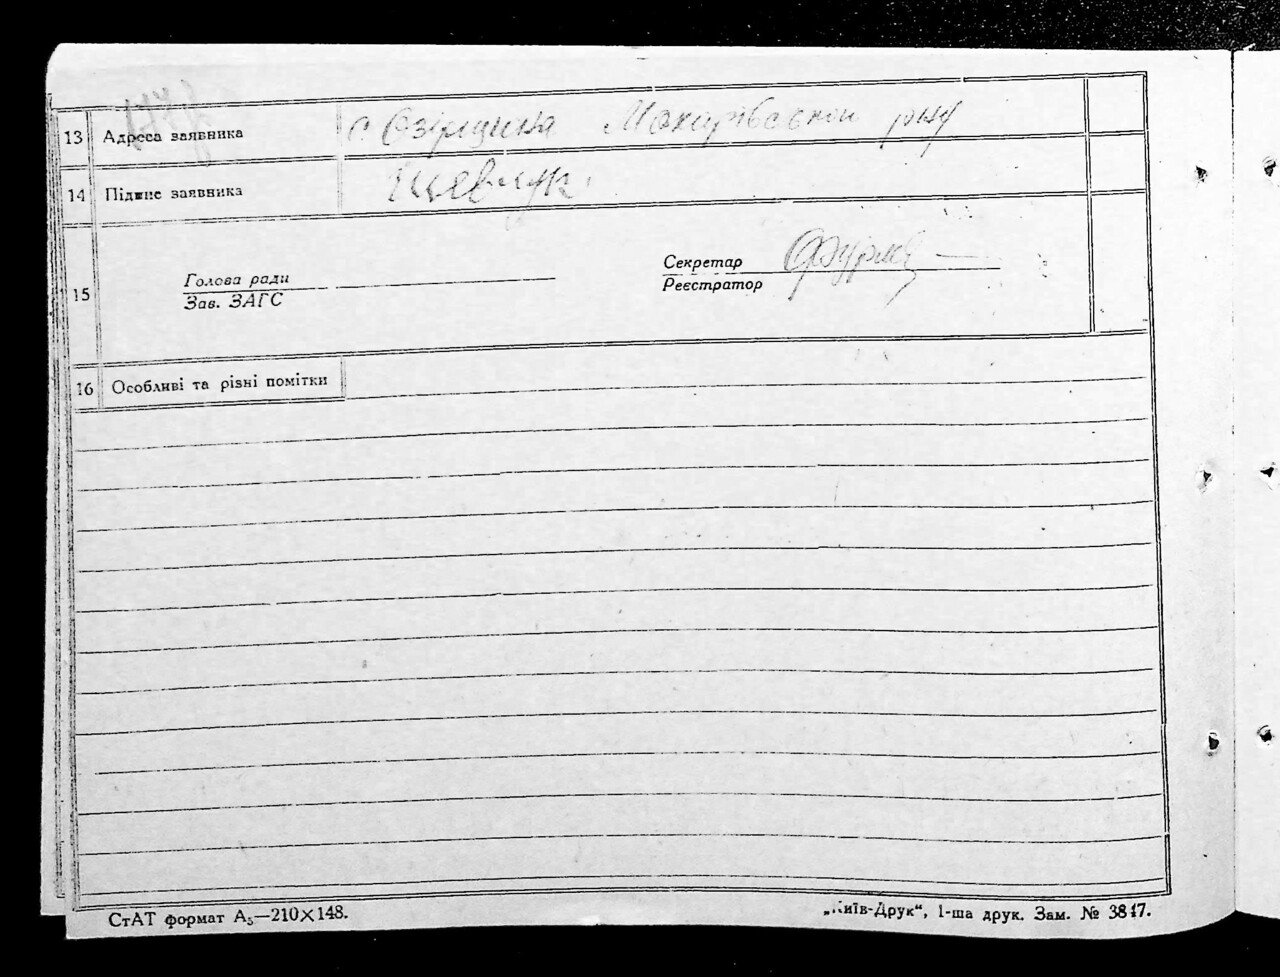 13 Адреса заявника с. Озірщина Макарівської р-ну
14 Підпис заявника Шевчук.
15 Голова ради
Зав. ЗАГС
Секретар
Реєстратор
16 Особливі та різні помітки
СтАТ формат А₅—210×148.
„Київ-Друк“, 1-ша друк. Зам. № 3847.